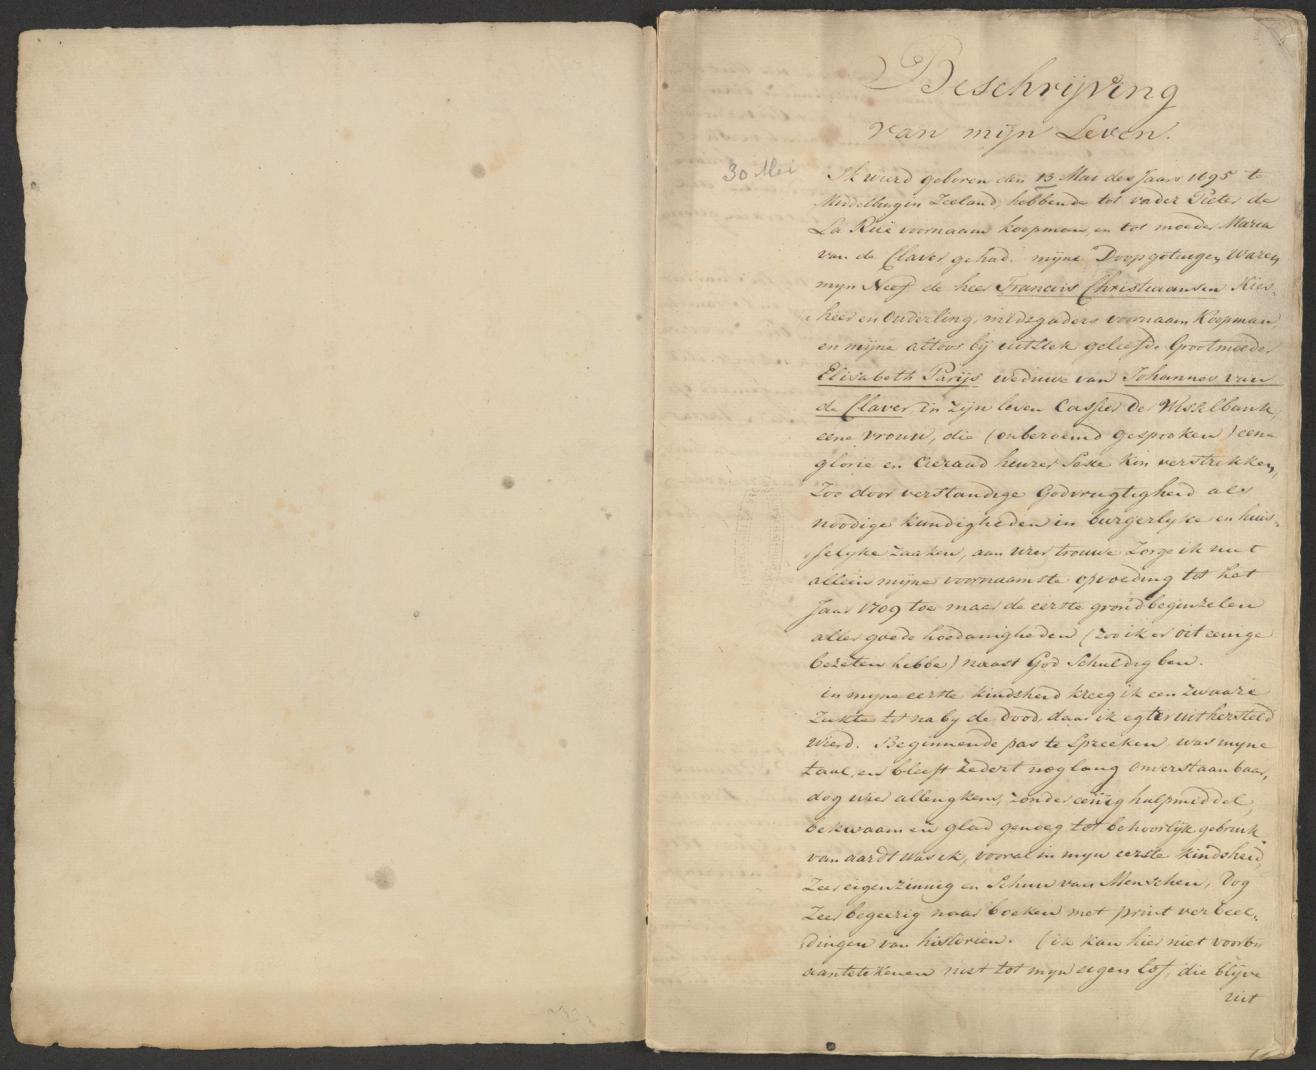 Beschrijving
van mijn Leven.
30 Mei
Ik wierd geboren den 13 Mai des Jaars 1695 te
Middelburg in Zeeland, hebbende tot vader Pieter de
La Ruë voornaam koopman, en tot moeder Maria
van de Claver gehad. mijne Doopgetuigen waren
mijn Neef de heer Francois Christiaansen Kies-
heer en Ouderling, midsgaders voornaam Koopman,
en mijne altoos bij uitstek geliefde Grootmoeder
Elisabeth Parijs weduwe van Johannes van
de Claver, in zijn leven Cassier der Wisselbank,
eene vrouw, die (onberoemd gesproken) eene
glorie en Cieraad heurer Sexe kon verstrekken,
Zoo door verstandige Godvrugtigheid als
noodige kundigheden in burgerlyke en huis-
selyke zaaken, aan wier trouwe Zorge ik niet
allein mijne voornaamste opvoeding tot het
Jaar 1709 toe maar de eerste grondbeginzelen
aller goede hoedanigheden (zoo ik er oit eenige
bezeten hebbe) naast God Schuldig ben.
in myne eerste kindsheid kreeg ik een zwaare
Ziekte tot na by de dood, daar ik egter uit hersteld
wierd. Beginnende pas te Spreeken, was myne
taal, en bleeft zedert nog lang onverstaanbaar,
dog wier allengkens, zonder eenig hulpmiddel,
bekwaam en glad genoeg tot behoorlijk gebruik
van aardt was ik, vooral in myn eerste kindsheid,
Zeer eigenzinnig en Schuw van Menschen, Dog
Zeer begeerig naar boeken met print verbeel-
dingen van historien. (ik kan hier niet voorbij
aantetekenen niet tot myn eigen lof, die blijve
uit